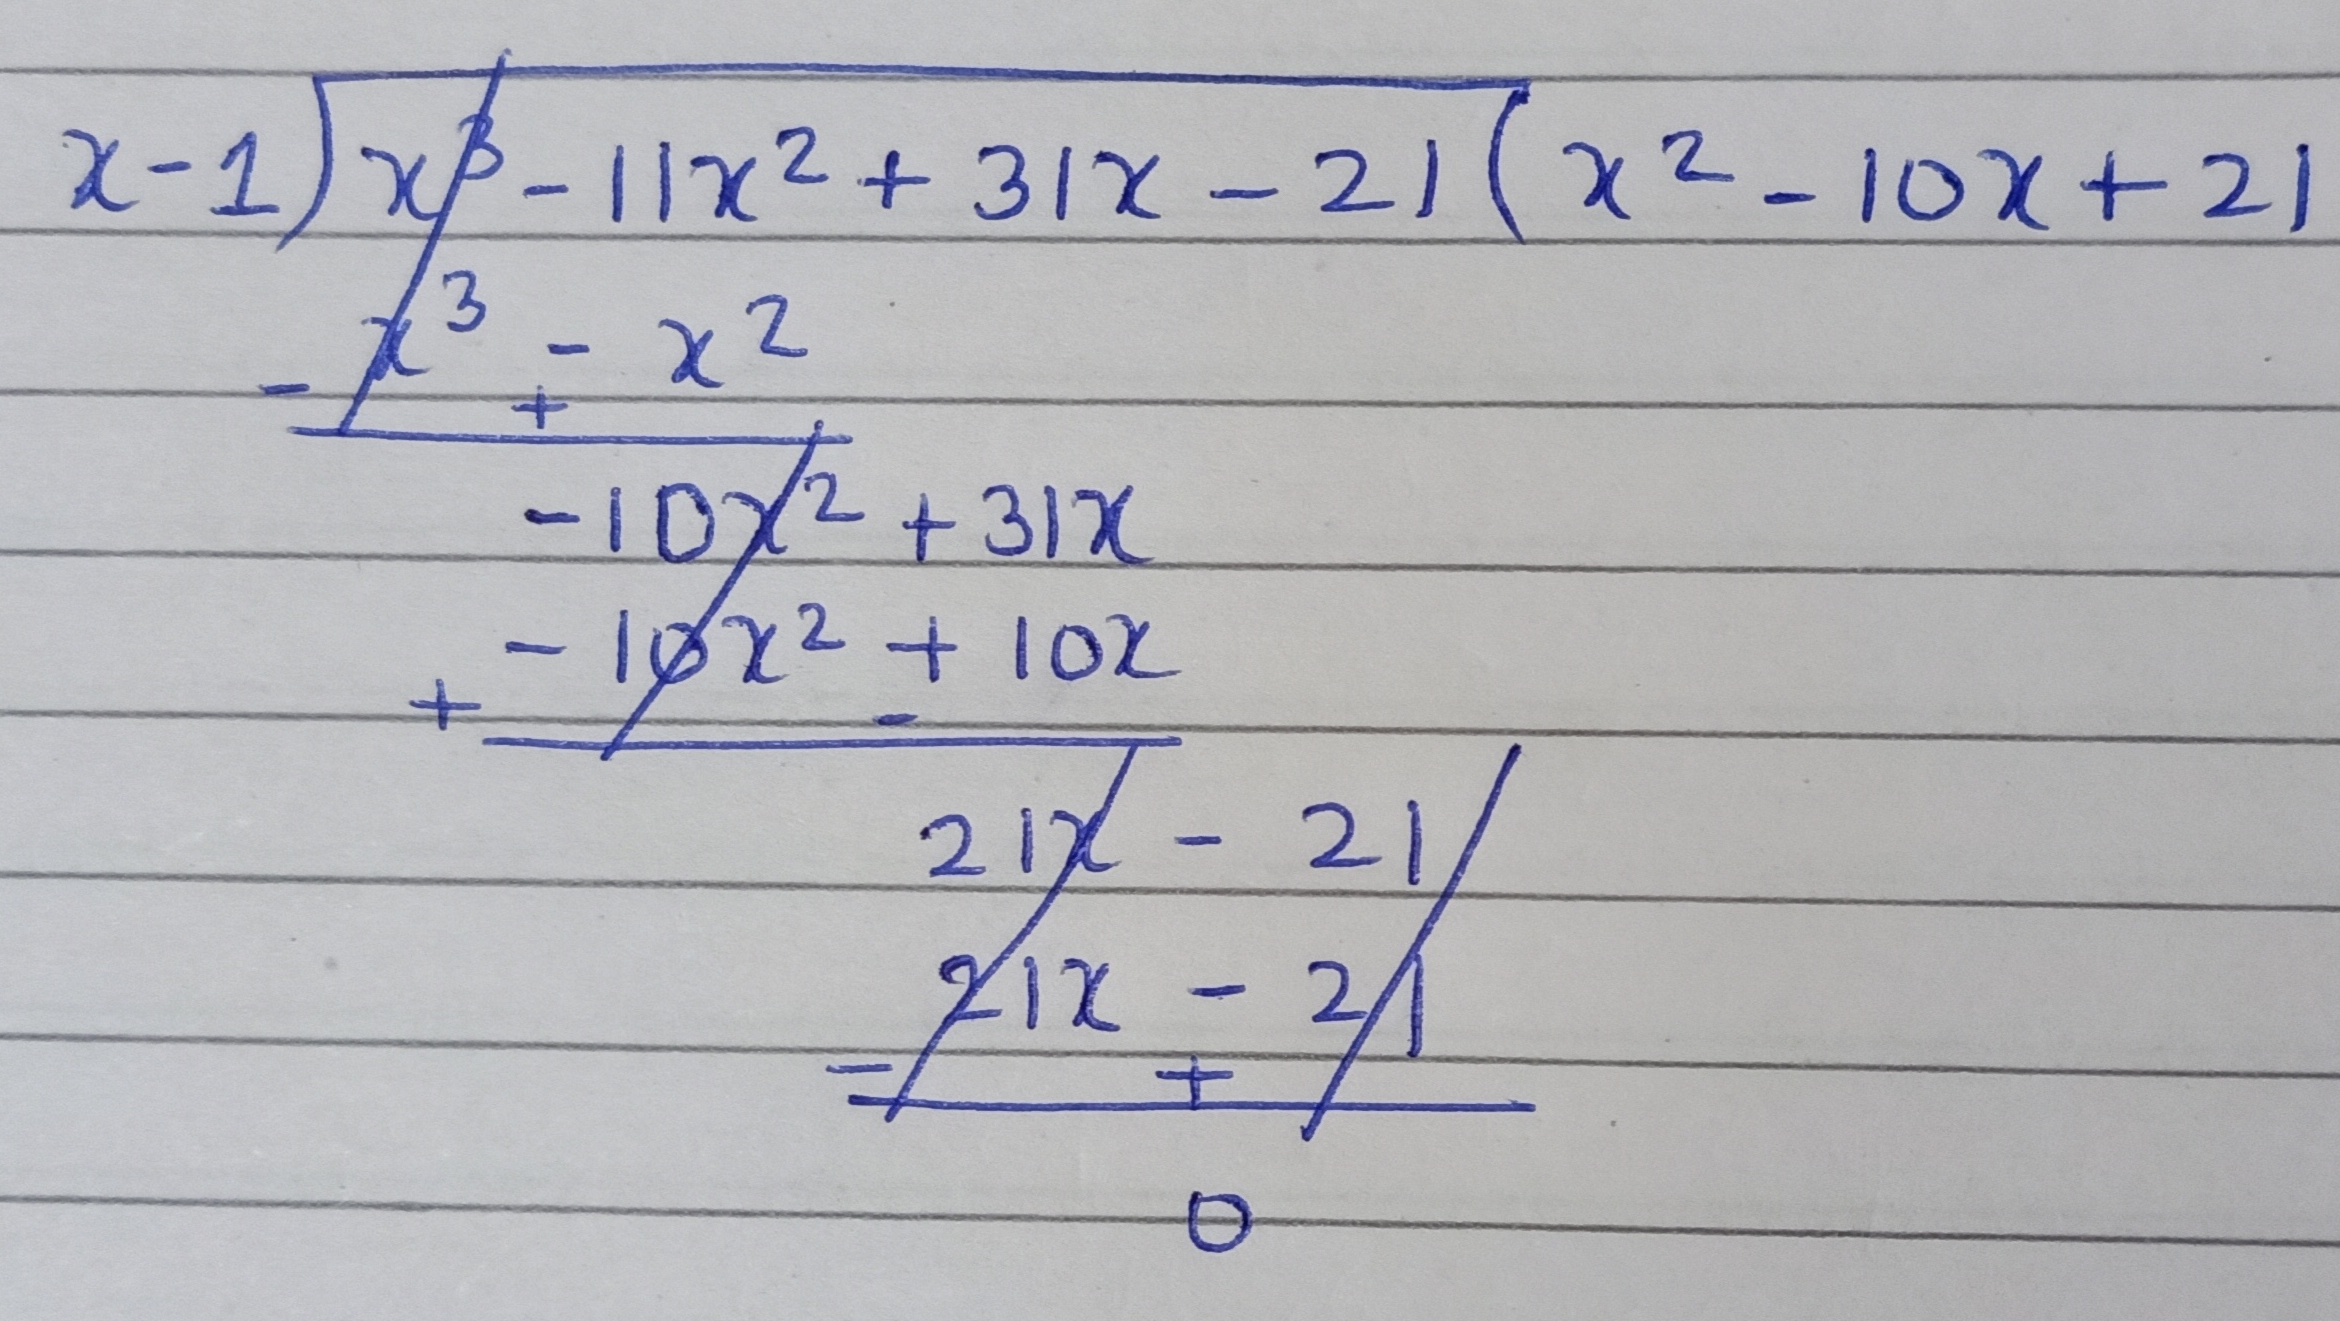 x-1)x³ - 11x² + 31x - 21(x² - 10x + 21
x³ - x²
- +
-10x² + 31x
-10x² + 10x
+ -
21x - 21
21x - 21
- +
0